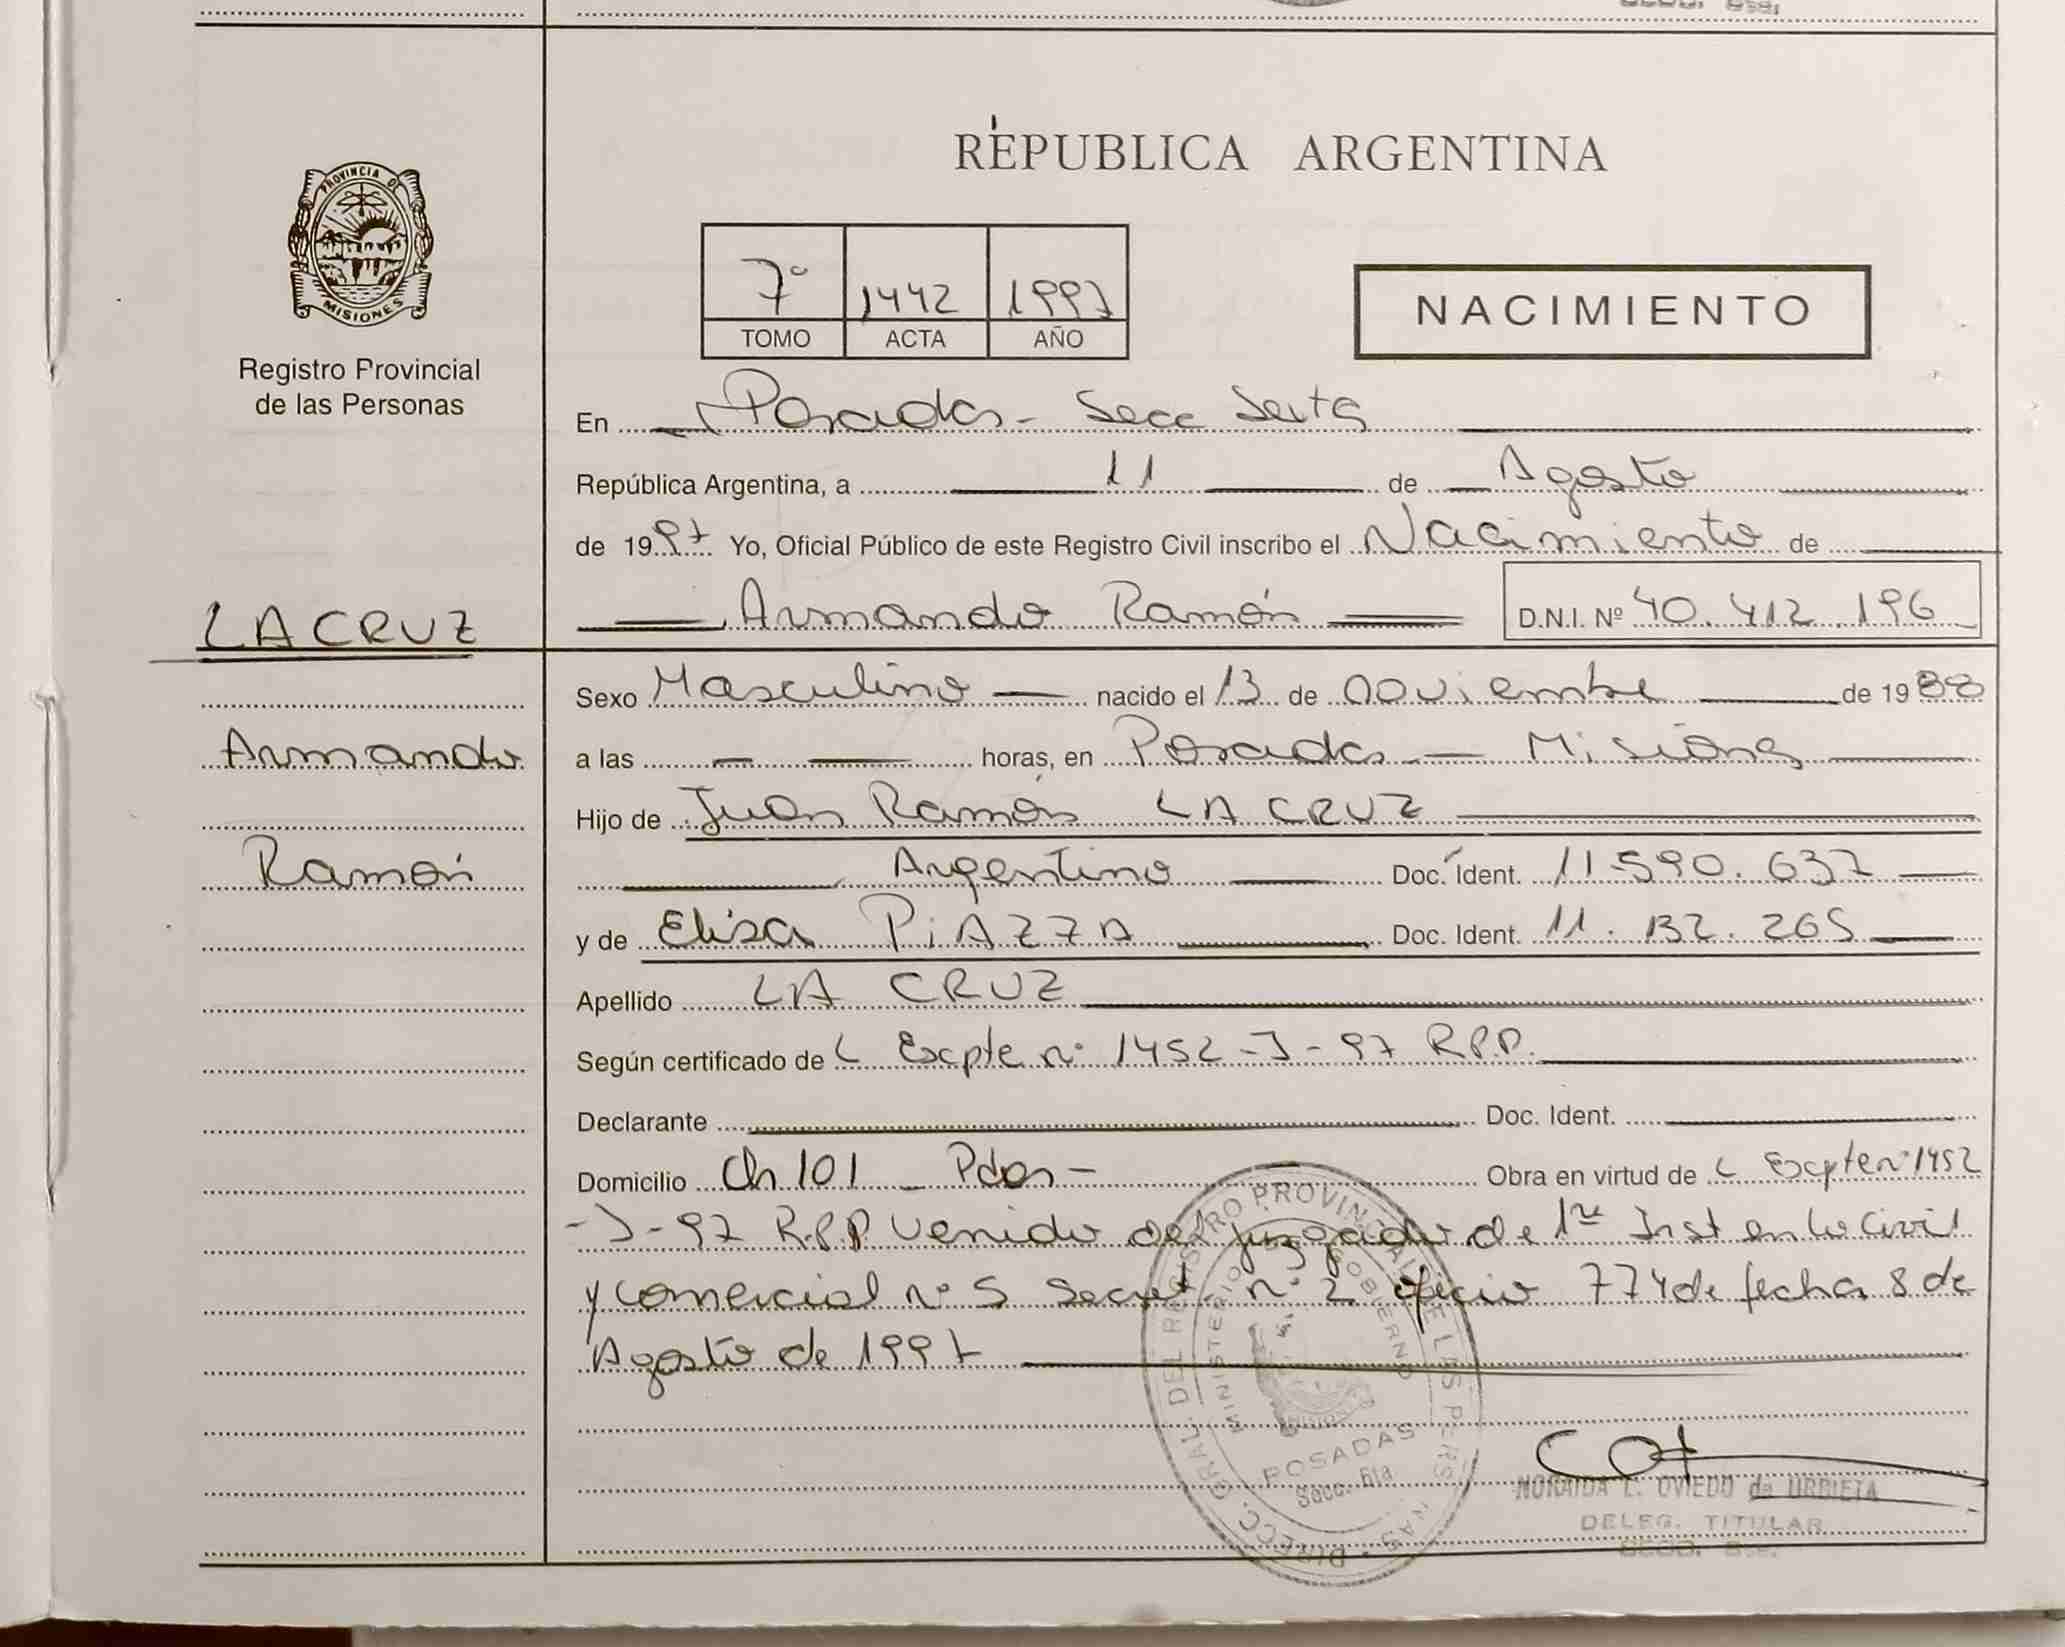 PROVINCIA DE
MISIONES
Registro Provincial
de las Personas
REPUBLICA ARGENTINA
7° 1442 1997
TOMO ACTA AÑO
NACIMIENTO
En Posadas - Secc Sexta
República Argentina, a 11 de Agosto
de 1997 Yo, Oficial Público de este Registro Civil inscribo el Nacimiento de
LA CRUZ
Armando Ramón D.N.I. Nº 40.412.196
Sexo Masculino nacido el 13 de noviembre de 1988
Armando
a las — horas, en Posadas — Misiones
Hijo de Juan Ramón LA CRUZ
Ramón
Argentino Doc. Ident. 11.590.637
y de Elisa PiAZZA Doc. Ident. 11.132.265
Apellido LA CRUZ
Según certificado de Expte nº 1452-J-97 R.P.P.
Declarante Doc. Ident.
Domicilio Ch 101 - Pdas - Obra en virtud de Expte nº 1452
-J-97 R.P.P venido del Juzgado de 1ra Inst en lo Civil
y Comercial nº 5 Secret nº 2 oficio 774 de fecha 8 de
Agosto de 1997
DIRECC. GRAL. DEL REGISTRO PROVINCIAL DE LAS PERSONAS
MINISTERIO DE GOBIERNO
POSADAS
Secc. 6ta
NORAIDA L. OVIEDO de URBIETA
DELEG. TITULAR